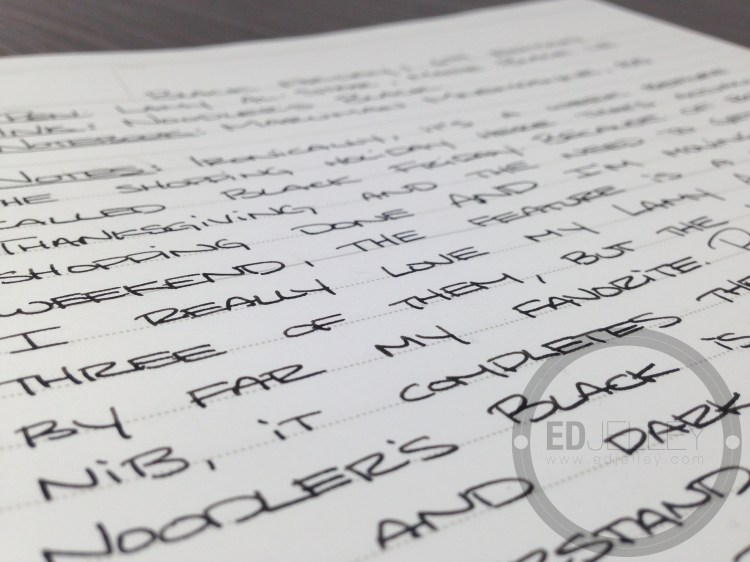 BLACK FRIDAY
PEN: LAMY AL STAR,
INK: NOODLER'S BLACK
NOTEBOOK: MARUMAN MNEMOSYNE
NOTES: IRONICALLY, IT'S A WEEK BEFORE
THE SHOPPING HOLIDAY HERE THAT'S
CALLED BLACK FRIDAY BECAUSE OF
THANKSGIVING AND THE NEED TO GET
SHOPPING DONE AND I'M
WEEKEND, THE FEATURE IS A
I REALLY LOVE MY LAMY
THREE OF THEM, BUT THE
BY FAR MY FAVORITE.
NIB, IT COMPLETES THE
NOODLER'S BLACK IS
AND DARK
EDJELLEY
www.edjelley.com